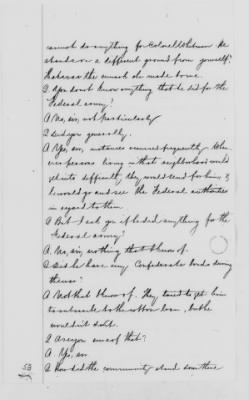 cannot do anything for Colonel Whitmore. He
stands on a different ground from yourself.
that was the remark he made to me.
Q You don't know anything that he did for the
Federal army?
A No, sir, not particularly
Q But generally.
A Yes, sir, instances occurred frequently when
persons living in that neighborhood would
get into difficulty they would send for him &
he would go and see the Federal authorities
in regard to them.
Q But I ask you if he did anything for the
Federal army?
A. No, sir, nothing that I know of.
Q Did he have any Confederate bonds during
the war?
A Not that I know of. They tried to get him
to subscribe to the cotton loan, but he
wouldn't do it.
Q Are you sure of that?
A. Yes, sir
Q How did the community stand down there
53